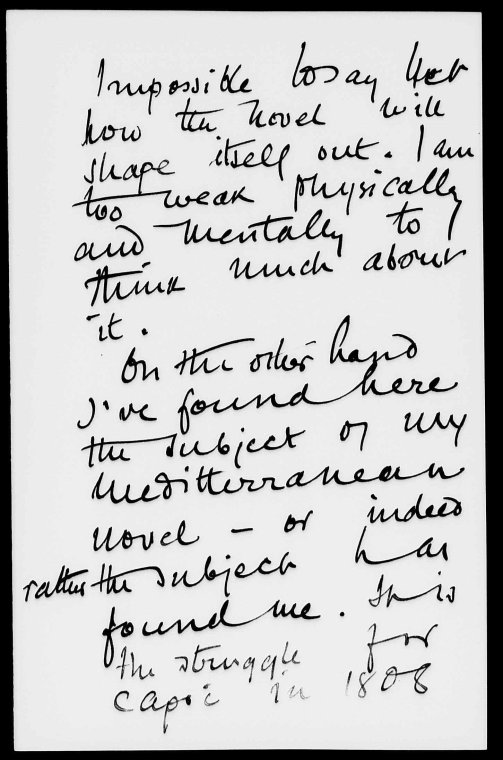 Impossible to say yet
how the novel will
shape itself out. I am
too weak physically
and mentally to
think much about
it.
On the other hand
I've found here
the subject of my
Mediterranean
novel – or indeed
rather the subject has
found me. It is
the struggle for
Capri in 1808